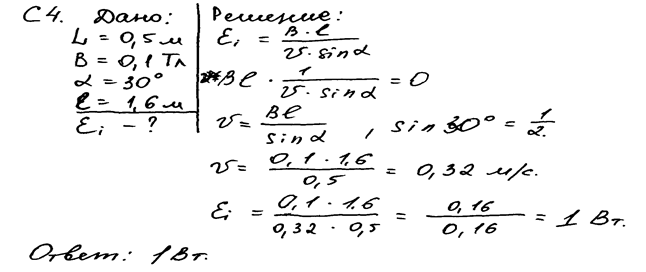 С4. Дано:
L = 0,5 м
B = 0,1 Тл
α = 30°
ℓ = 1,6 м
Ɛi - ?
Решение:
Ɛi = B · ℓ / υ · sin α
Bℓ · 1 / υ · sin α = 0
υ = Bℓ / sin α , sin 30° = 1/2.
υ = 0,1 · 1.6 / 0,5 = 0,32 м/с.
Ɛi = 0,1 · 1.6 / 0,32 · 0,5 = 0,16 / 0,16 = 1 Вт.
Ответ: 1 Вт.